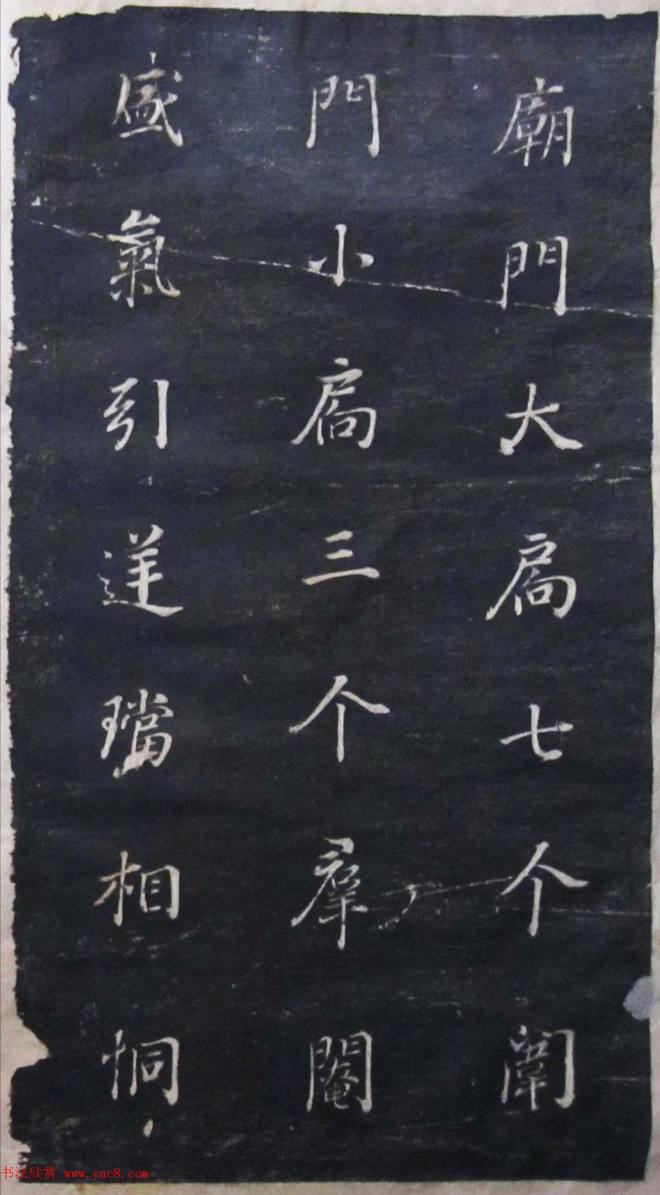 廟門大扃七个闈
門小扃三个羣閹
盛氣引逹璫相恫
书法欣赏 www.yac8.com